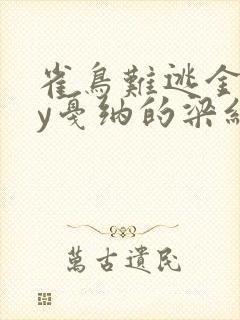 雀鳥難逃金
y戛纳的梁維
萬古遺民